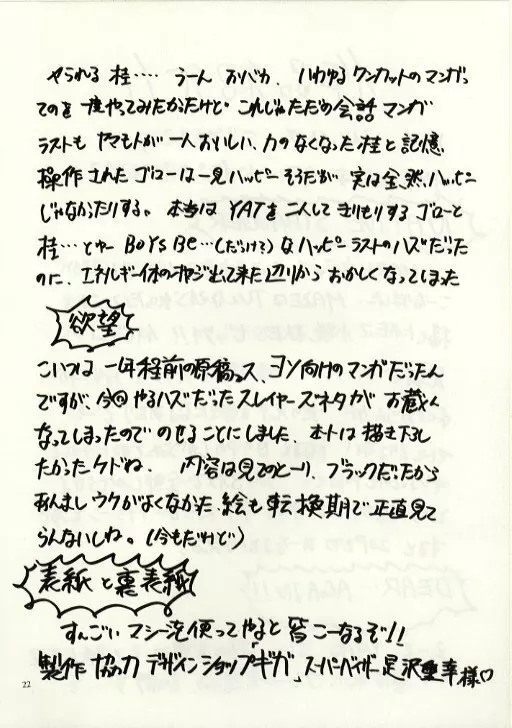 やられる 桂‥‥ うーん おバカ、いわゆるワンカットのマンガっ
てのを一度やってみたかったけど これじゃただの会話マンガ
ラストも ヤマモトが一人おいしい、力のなくなった桂と記憶
操作されたゴローは一見ハッピーそうだが 実は全然ハッピー
じゃなかたりする。本当は YATを二人してきりもりするゴローと
桂…とゆー BoYs Be…(だっけ?)なハッピーラストのハズだった
のに、エネルギー体のオヤジ出て来た辺りからおかしくなってしまった
欲望
こいつは 一年程前の原稿っス、ヨソ向けのマンガだったん
ですが、今回やるハズだったスレイヤーズネタが お蔵入
なってしまったので のせることにしました、ホントは描き下し
たかったケドね。 内容は見てのとーり、ブラックだったから
あんましウケがよくなかった、絵も転換期で正直見て
らんないしね。(今もだけど)
表紙と裏表紙
すんごいマシーン使ってやると 皆こーなるぞ!!
製作協力 デザインショップ「ギガ」スーパーバイザー 足沢 幸様♡
22